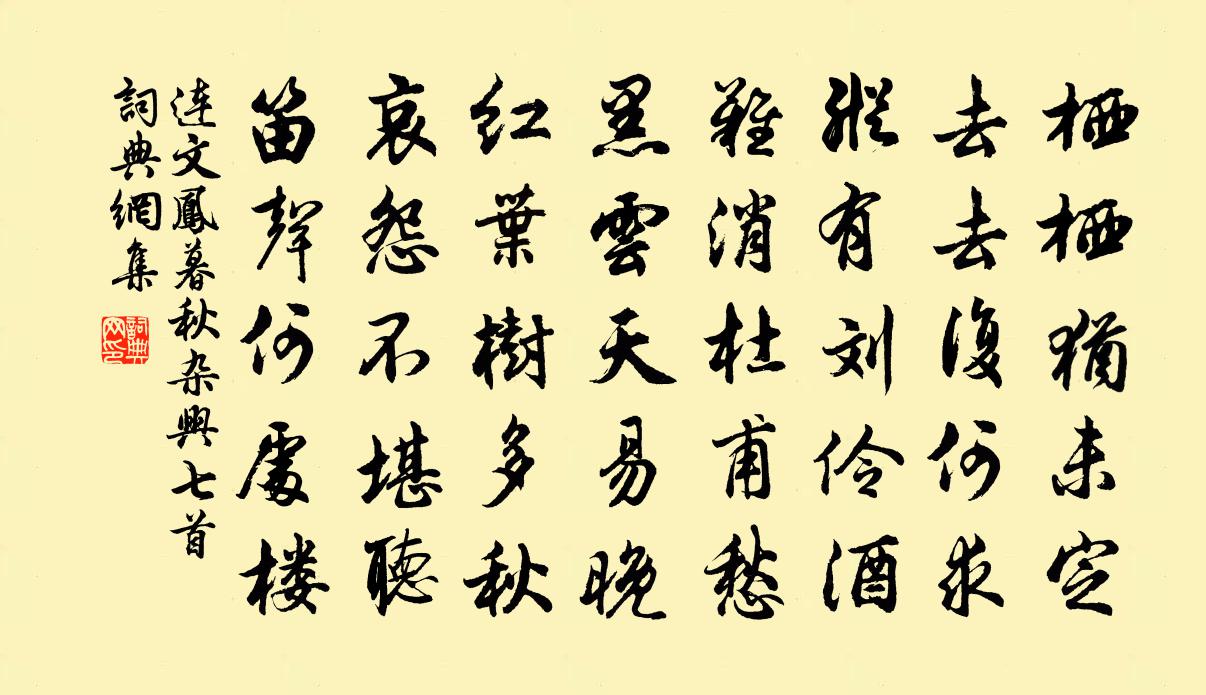 栖栖猶未定
去去復何求
縱有刘伶酒
難消杜甫愁
黑雲天易晚
紅葉樹多秋
哀怨不堪聽
笛聲何處楼
连文鳳暮秋杂興七首
詞典網集
詞典网印